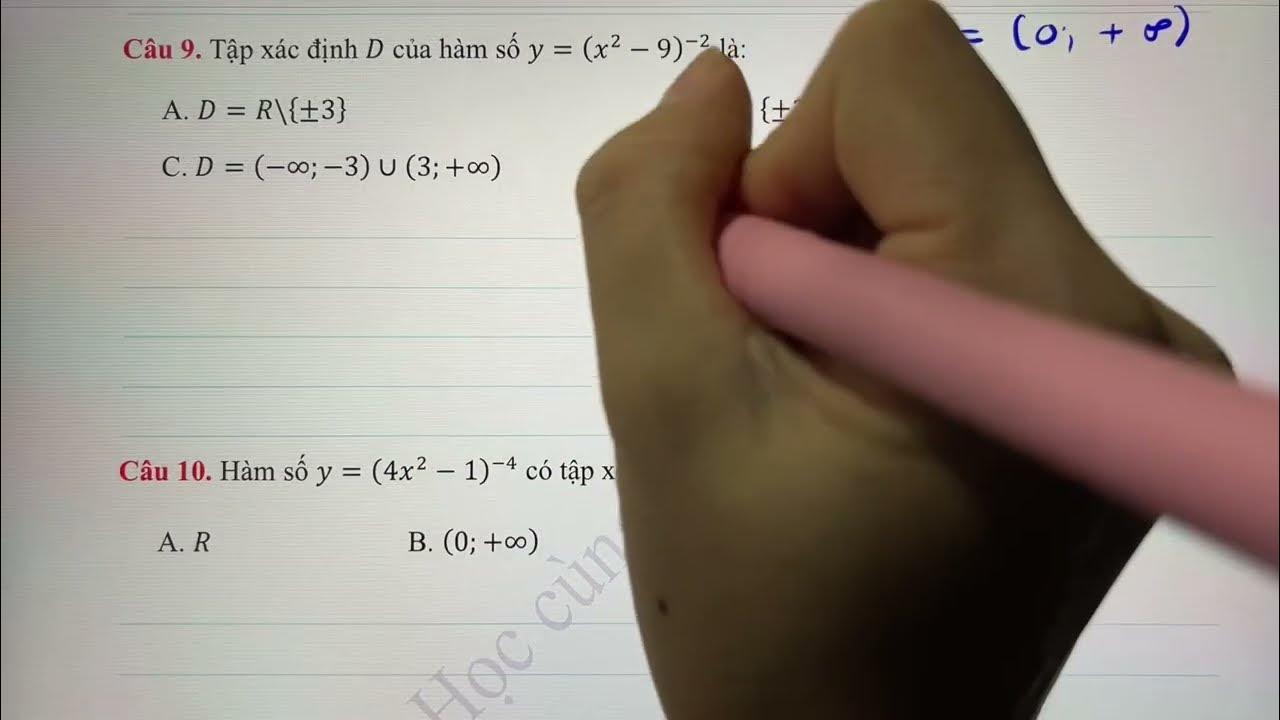 Câu 9. Tập xác định D của hàm số y = (x² − 9)⁻² là:
= (0; + ∞)
A. D = R\{±3}
{±
C. D = (−∞; −3) ∪ (3; +∞)
Câu 10. Hàm số y = (4x² − 1)⁻⁴ có tập x
A. R B. (0; +∞)
Học cùn